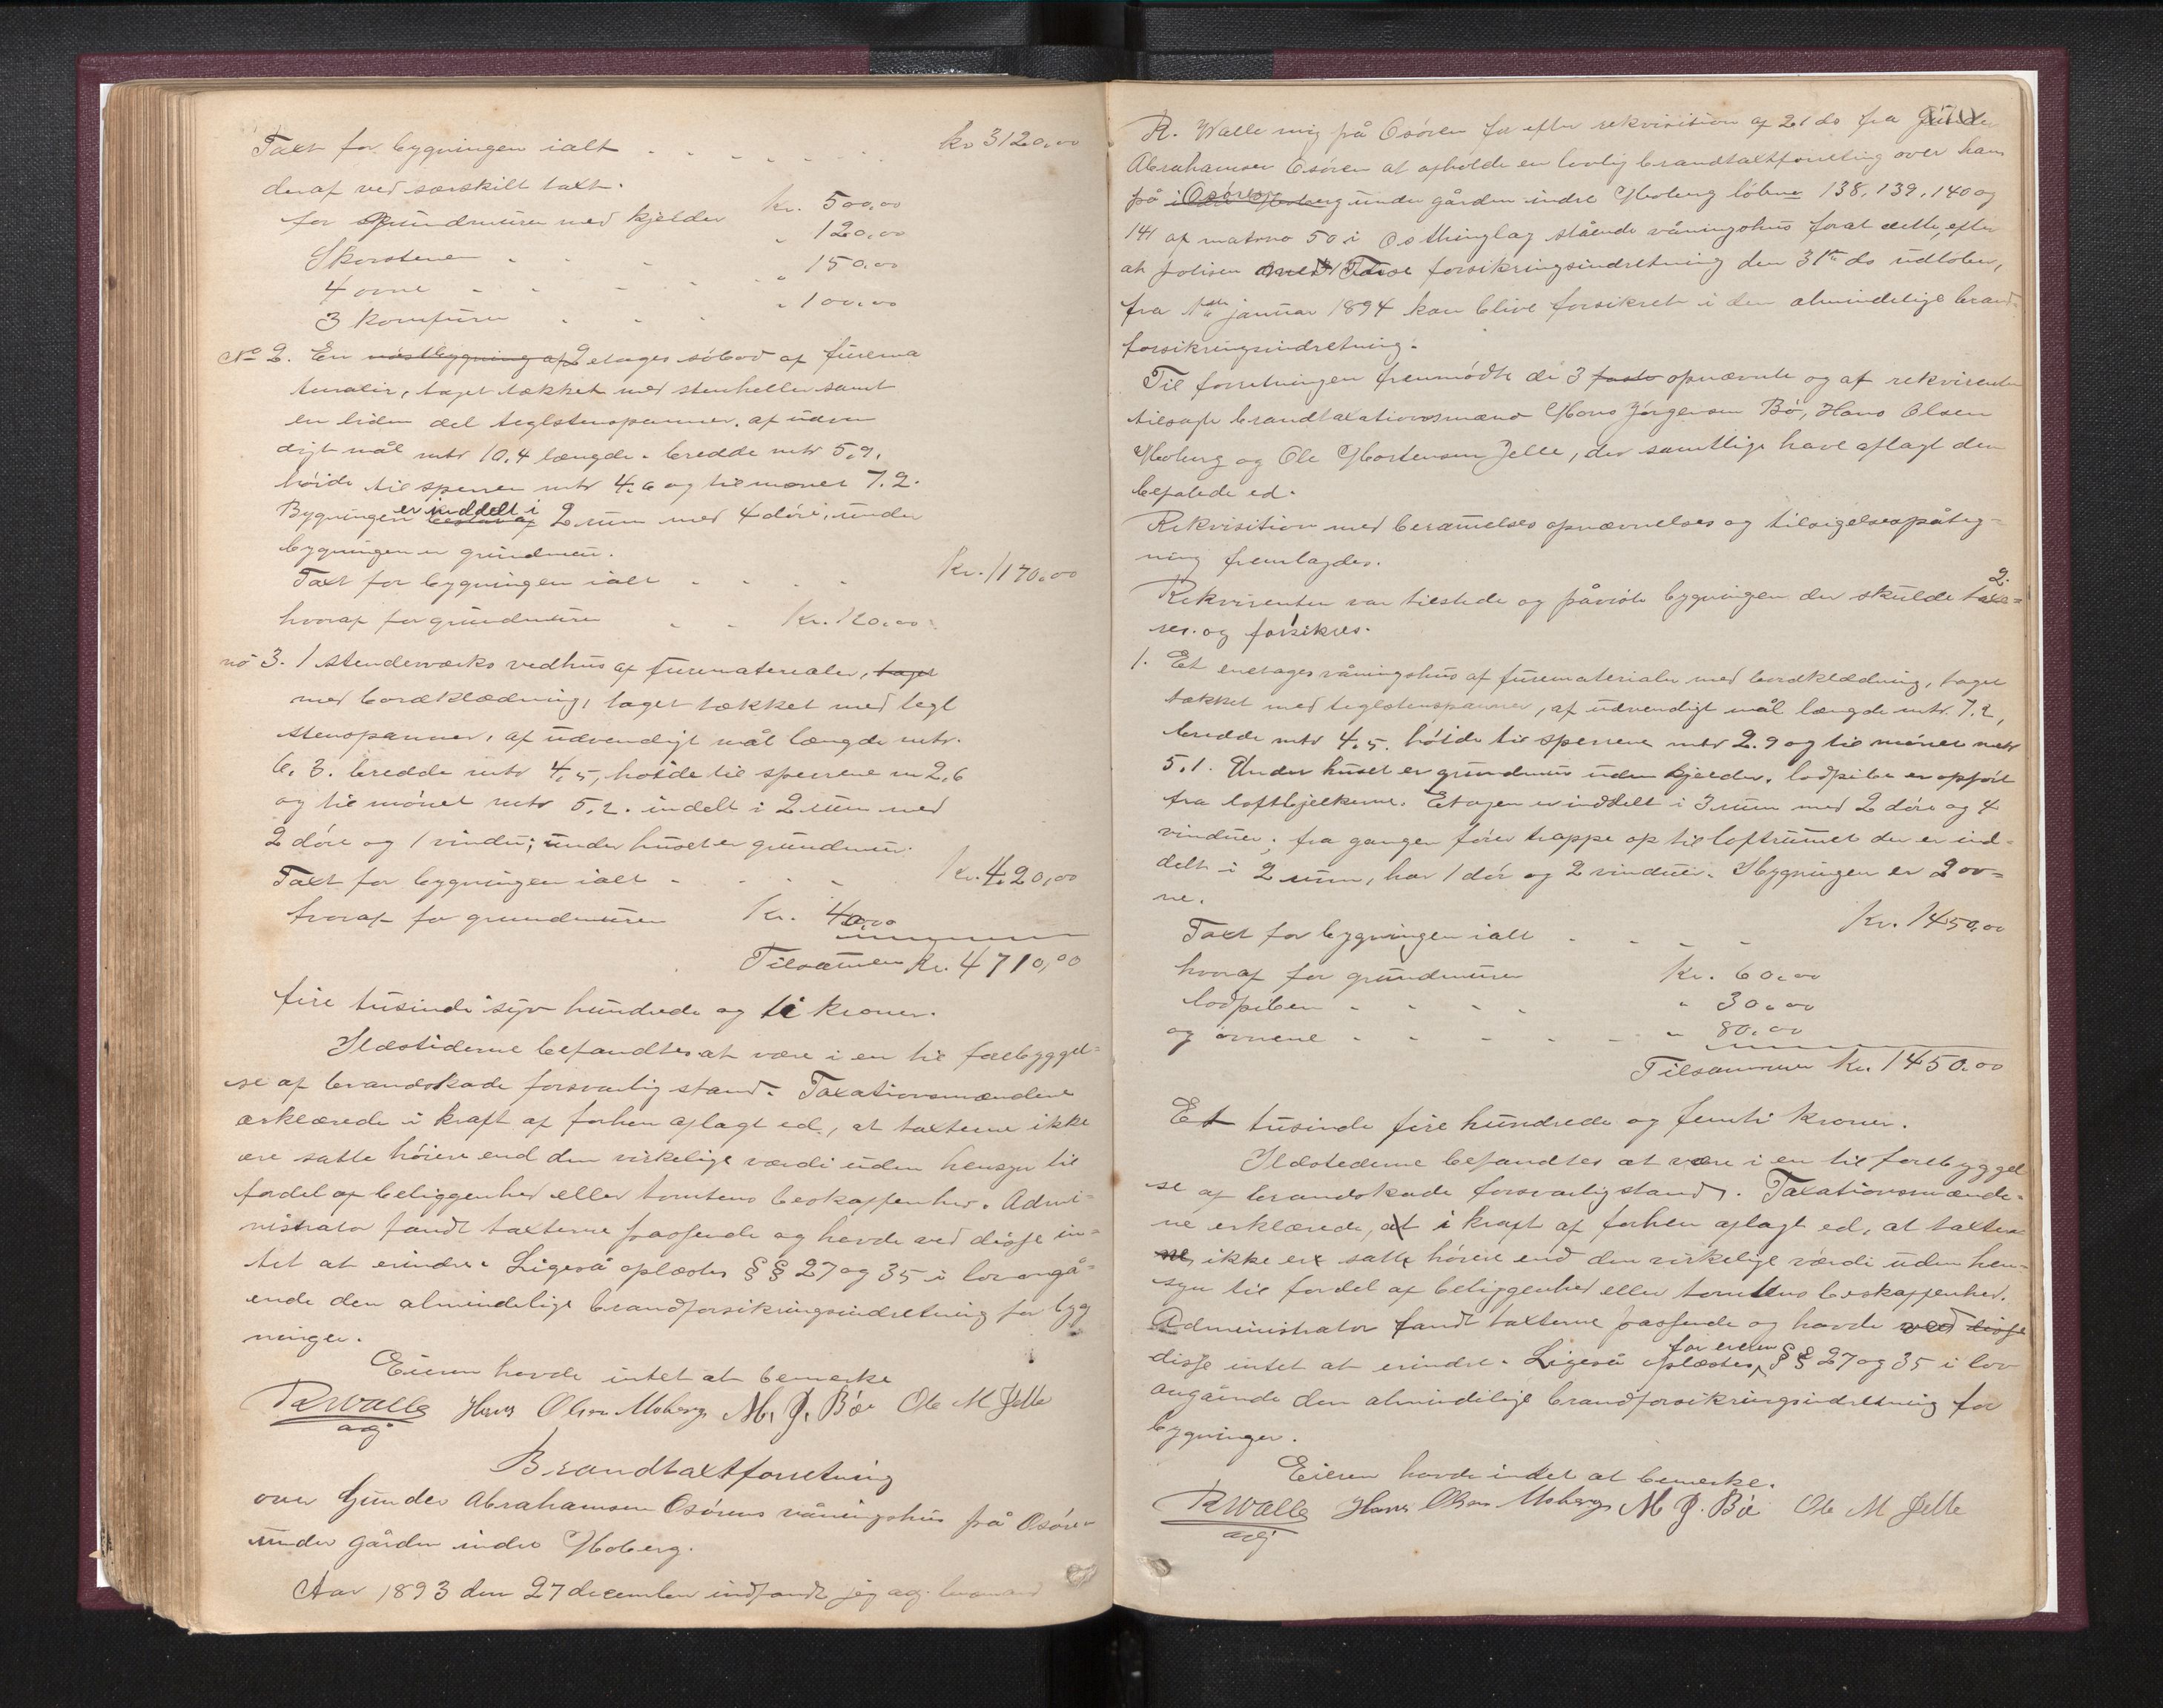 Taxt for bygningen ialt . . . . . . . kr 3120,00
deraf ved særskilt taxt.
for grundmuren med kjelder kr. 500,00
Skorstene . . . " 120,00
4 ovne . . . . " 150,00
3 komfurer . . . " 100,00
No 2. En nøstbygning af 2 etages søbod af furema
terialer, taget tækket med stenheller samt
en liden del teglstenspanner, af udven
digt mål mtr 10,4 længde. bredde mtr 5,9,
høide til sperren mtr 4,6 og til mønet 7.2.
Bygningen bestaar af er inddelt i 2 rum med 4 døre, under
bygningen er grundmur.
Taxt for bygningen ialt . . . . kr. 1170,00
hvoraf for grundmuren . . kr. 120,00
no 3. 1 stenderværks vedhus af furematerialer, taget
med bordklædning, taget tækket med tegl
stenspanner, af udvendigt mål længde mtr.
6,3. bredde mtr 4,5, høide til sperrene m 2,6
og til mønet mtr 5,2. indelt i 2 rum med
2 døre og 1 vindu; under huset er grundmur.
Taxt for bygningen ialt . . . . Kr. 420,00
hvoraf for grundmuren Kr. 40,00
Tilsamen kr. 4710,00
fire tusinde syv hundrede og ti kroner.
Ildstederne befandtes at være i en til forebyggel=
se af brandskade forsvarlig stand. Taxationsmændene
erklærede i kraft af forhen aflagt ed, at taxterne ikke
ere satte høiere end den virkelige værdi uden hensyn til
fordel af beliggenhed eller tomtens beskaffenhed. Admi=
nistrator fandt taxterne passende og havde ved disse in=
tet at erindre. Ligeså oplæstes §§ 27 og 35 i lov angå=
ende den almindelige brandforsikringsindretning for byg
ninger.
Eieren havde intet at bemerke
R Walle Hans Olsen Moberg M. J. Bø Ole M Jelle
adj
Brandtaxtforretning
over Gunder Abrahamsen Osørens våningshus på Osøren
under gården indre Moberg.
Aar 1893 den 27 december indfandt jeg adj. lensmand
R. Walle mig på Osøren for efter rekvisition af 21 ds fra Gunder
Abrahamsen Osøren at afholde en lovlig brandtaxtforretning over hans
på i Osøren under gården indre Moberg løbno 138, 139, 140 og
141 af matrno 50 i Os thinglag stående våningshus forat dette, efter
at polisen med forsikringsindretning den 31te ds udløber,
fra 1ste januar 1894 kan blive forsikret i den almindelige brand=
forsikringsindretning.
Til forretningen fremmødte de 3 faste opnævnte og af rekvirenten
tilsagte brandtaxationsmænd Mons Jørgensen Bø, Hans Olsen
Moberg og Ole Mortensen Jelle, der samtlige have aflagt den
befalede ed.
Rekvisition med berammelses opnævnelses og tilsigelsespåteg=
ning fremlagdes.
2.
Rekvirenten var tilstede og påviste bygningen der skulde taxe=
res og forsikres.
1. Et enetages våningshus af furematerialer med bordklædning, taget
tækket med teglstenspanner, af udvendigt mål længde mtr. 7.2,
bredde mtr 4,5. høide til sperrene mtr 2.9 og til mønet mtr
5,1. Under huset er grundmur uden kjelder. lodpibe er opført
fra loftbjelkerne. Etagen er inddelt i 3 rum med 2 døre og 4
vinduer; fra gangen fører trappe op til loftrummet der er ind=
delt i 2 rum, har 1 dør og 2 vinduer. I bygningen er 2 ov=
ne.
Taxt for bygningen ialt . . . . Kr. 1450,00
hvoraf for grundmuren kr. 60,00
lodpiben . . . . " 30,00
og ovnene . . . . . . " 80,00
Tilsammen kr. 1450,00
Et tusinde fire hundrede og femti kroner.
Ildstederne befandtes at være i en til forebyggel
se af brandskade forsvarlig stand. Taxationsmænde=
ne erklærede, at i kraft af forhen aflagt ed, at taxter
ne ikke er satte høiere end den virkelige værdi uden hen=
syn til fordel af beliggenhed eller tomtens beskaffenhed.
Administrator fandt taxterne passende og havde ved disse
disse intet at erindre. Ligeså oplæstes for eieren §§ 27 og 35 i lov
angående den almindelige brandforsikringsindretning for
bygninger.
Eieren havde indet at bemerke.
R Walle Hans Olsen Moberg M J. Bø Ole M Jelle
adj